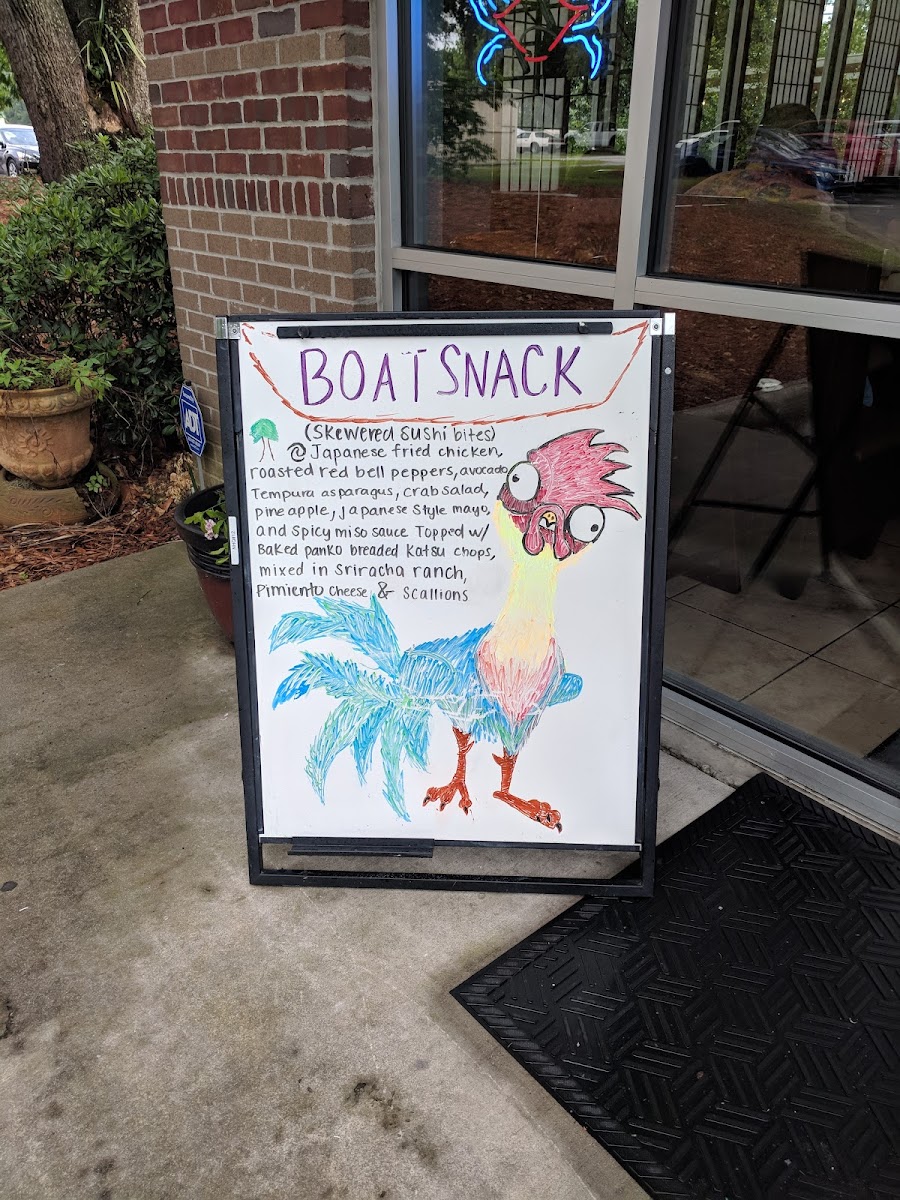 BOAT SNACK
(Skewered Sushi bites)
Japanese fried chicken,
roasted red bell peppers, avocado
Tempura asparagus, crab salad,
pineapple, Japanese style mayo,
and spicy miso sauce Topped w/
Baked panko breaded Katsu chops,
mixed in Sriracha ranch,
Pimiento cheese & Scallions
ADT